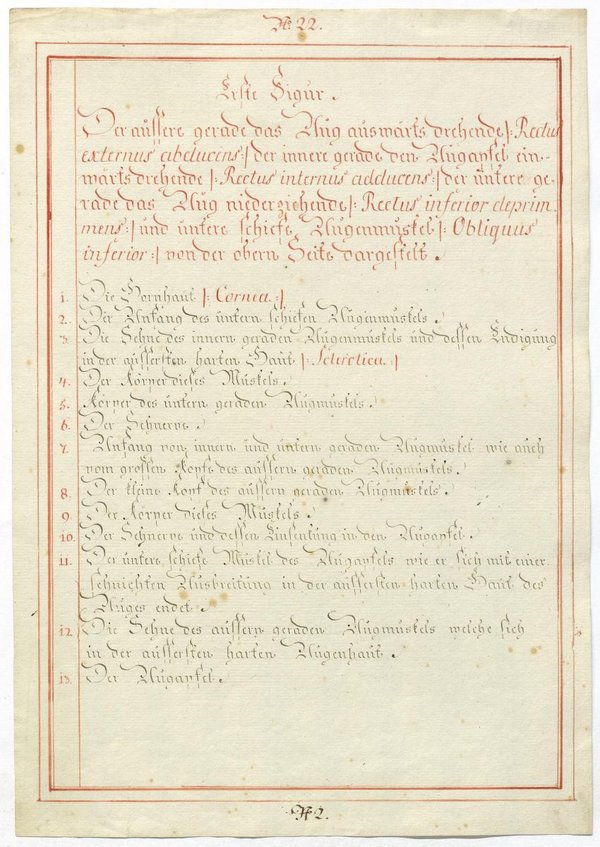 No. 22.
Erste Figur.
Der äussere gerade das Aug auswärts drehende |: Rectus
externus abducens :| der innere gerade den Augapfel ein-
wärts drehende |: Rectus internus adducens :| der untere ge-
rade das Aug niederziehende |: Rectus inferior deprim
mens :| und untere schiefe Augenmuskel |: Obliquus
inferior :| von der obern Seite dargestelt.
1. Die Hornhaut |: Cornea :|
2. Der Anfang des untern schiefen Augenmuskels.
3. Die Sehne des innern geraden Augenmuskels und dessen Endigung
in der äussersten harten Haut |: Sclerotica :|
4. Der Körper dieses Muskels.
5. Körper des untern geraden Augmuskels.
6. Der Sehnerve.
7. Anfang von innern und untern geraden Augmuskel wie auch
vom grossen Kopfe des äussern geraden Augmuskels.
8. Der kleine Kopf des äussern geraden Augmuskels.
9. Der Körper dieses Muskels.
10. Der Sehnerve und dessen Einsenkung in den Augapfel.
11. Der untere schiefe Muskel des Augapfels wie er sich mit einer
sehnichten Ausbreitung in der äussersten harten Haut des
Auges endet.
12. Die Sehne des äussern geraden Augmuskels welche sich
in der äussersten harten Augenhaut.
13. Der Augapfel.
2.